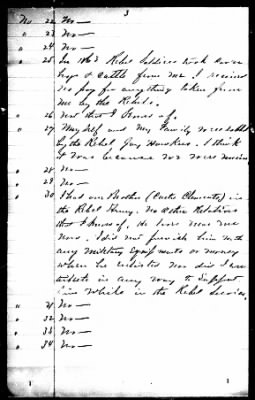 3
No. 22 No —
" 23 No —
" 24 No —
" 25 In 1863 Rebel Soldiers took some
hogs & cattle from me. I received
no pay for anything taken from
me by the Rebels.
" 26 Not that I know of.
" 27 My self and my family were
by the Rebel I think
it was because we were
" 28 No —
" 29 No —
" 30 I had one Brother (Curtis Clements) in
the Rebel Army. No other Relations
that I know of. He lives near me
now. I did not furnish him with
any military equipments or money
when he enlisted nor did I contribute
in any way to support
him while in the Rebel Service.
" 31 No —
" 32 No —
" 33 No —
" 34 No —
1 1